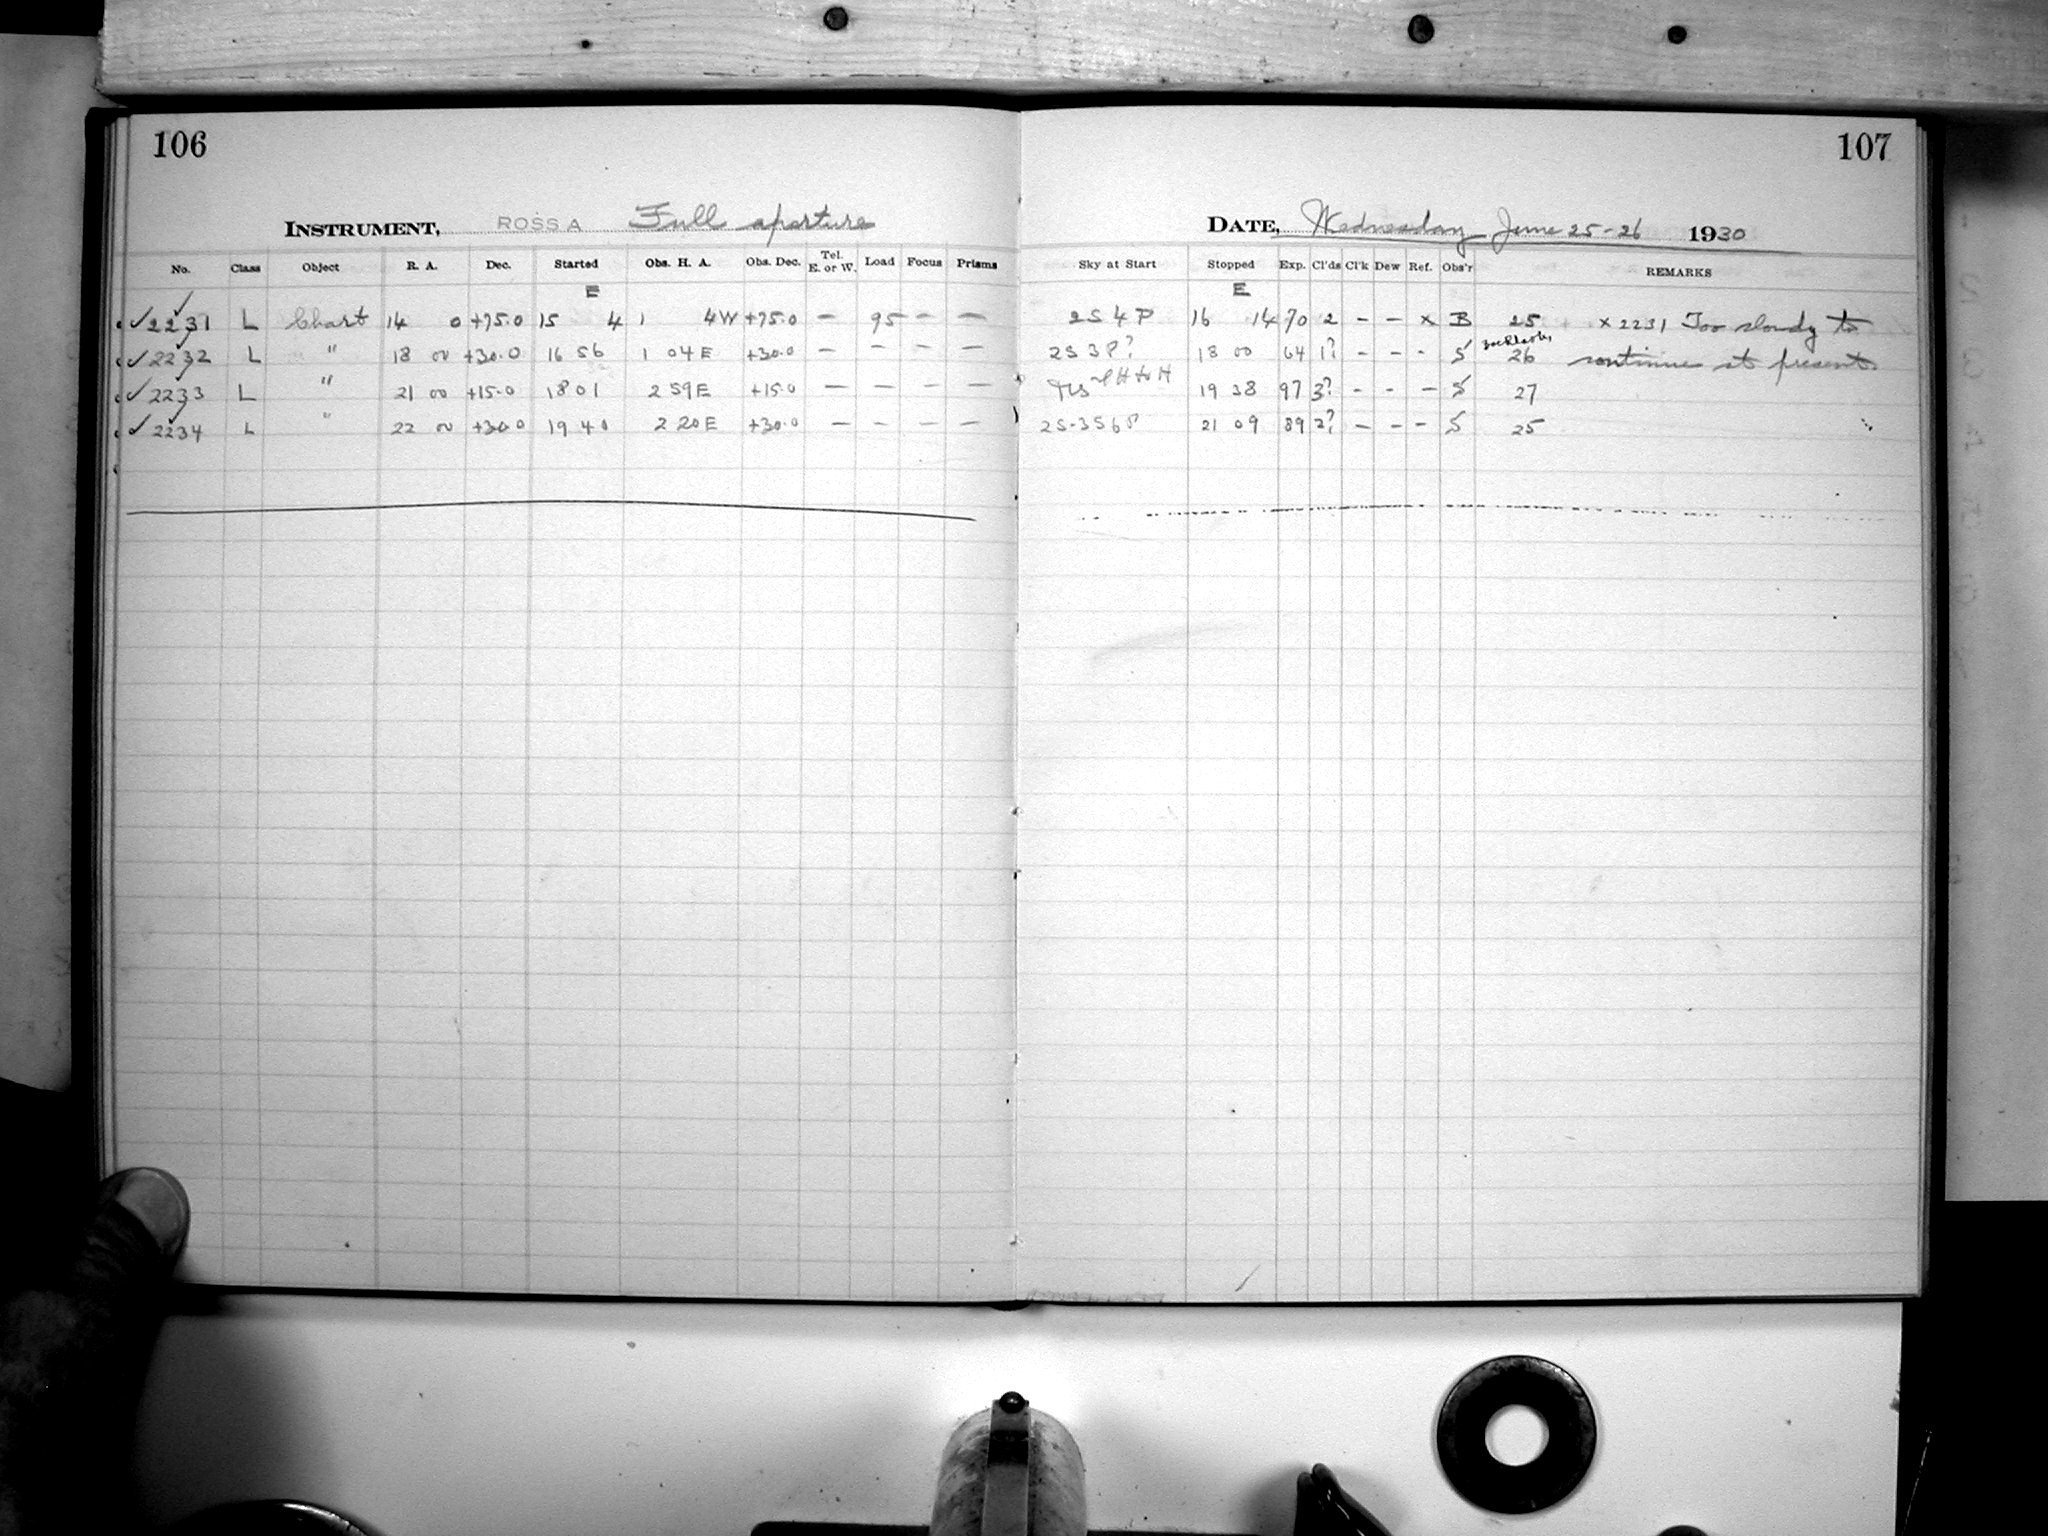 106
INSTRUMENT, ROSS A Full aperture
No. Class Object R. A. Dec. Started Obs. H. A. Obs. Dec. Tel. E. or W. Load Focus Prisms
E
✓2231 L Chart 14 0 +75.0 15 4 1 4W +75.0 — 95 — —
✓2232 L " 18 00 +30.0 16 56 1 04E +30.0 — — — —
✓2233 L " 21 00 +15.0 18 01 2 59E +15.0 — — — —
✓2234 L " 22 00 +30.0 19 40 2 20E +30.0 — — — —
107
DATE, Wednesday June 25-26 1930
Sky at Start Stopped Exp. Cl'ds Cl'k Dew Ref. Obs'r REMARKS
E
2S 4 P 16 14 70 2 – – x B 25 x 2231 Too cloudy to
2S 3 P? 18 00 64 1? – – - S 26 continue at present
19 38 97 3? – - – S 27
2S-3S 6 P 21 09 89 2? – – – S 25